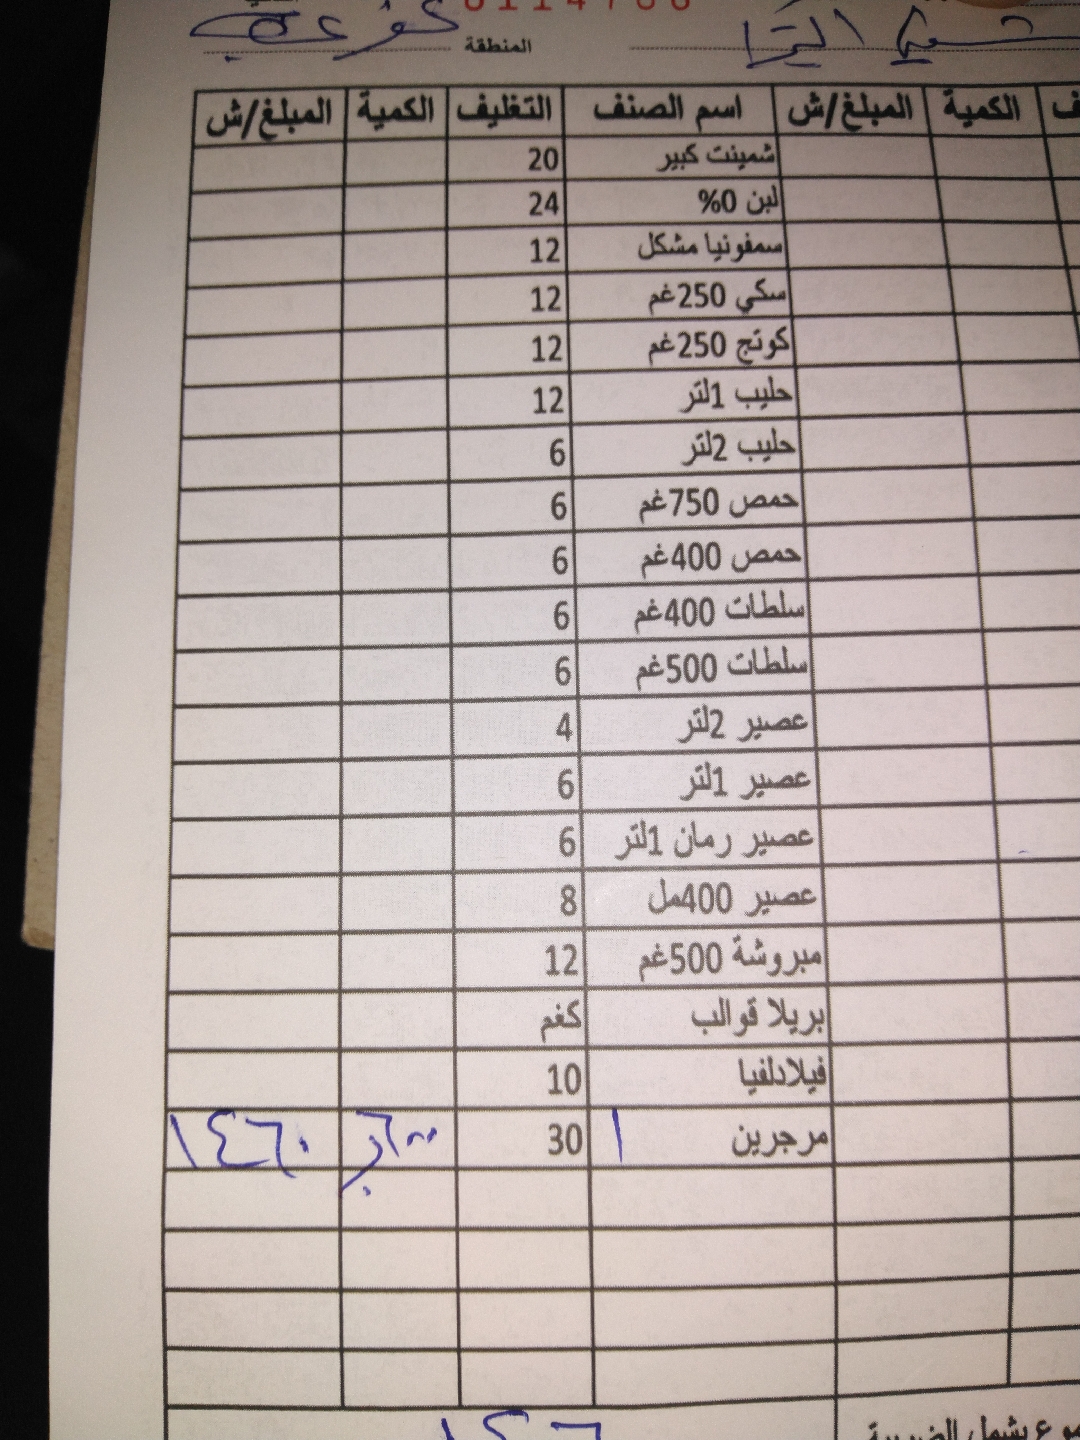 المنطقة
ف الكمية المبلغ/ش اسم الصنف التغليف الكمية المبلغ/ش
شمينت كبير 20
لبن 0% 24
سمفونيا مشكل 12
سكي 250غم 12
كوتج 250غم 12
حليب 1لتر 12
حليب 2لتر 6
حمص 750غم 6
حمص 400غم 6
سلطات 400غم 6
سلطات 500غم 6
عصير 2لتر 4
عصير 1لتر 6
عصير رمان 1لتر 6
عصير 400مل 8
مبروشة 500غم 12
بريلا قوالب كغم
فيلادلفيا 10
مرجرين ١ 30 ١٤٦٠
يشمل الضريبة